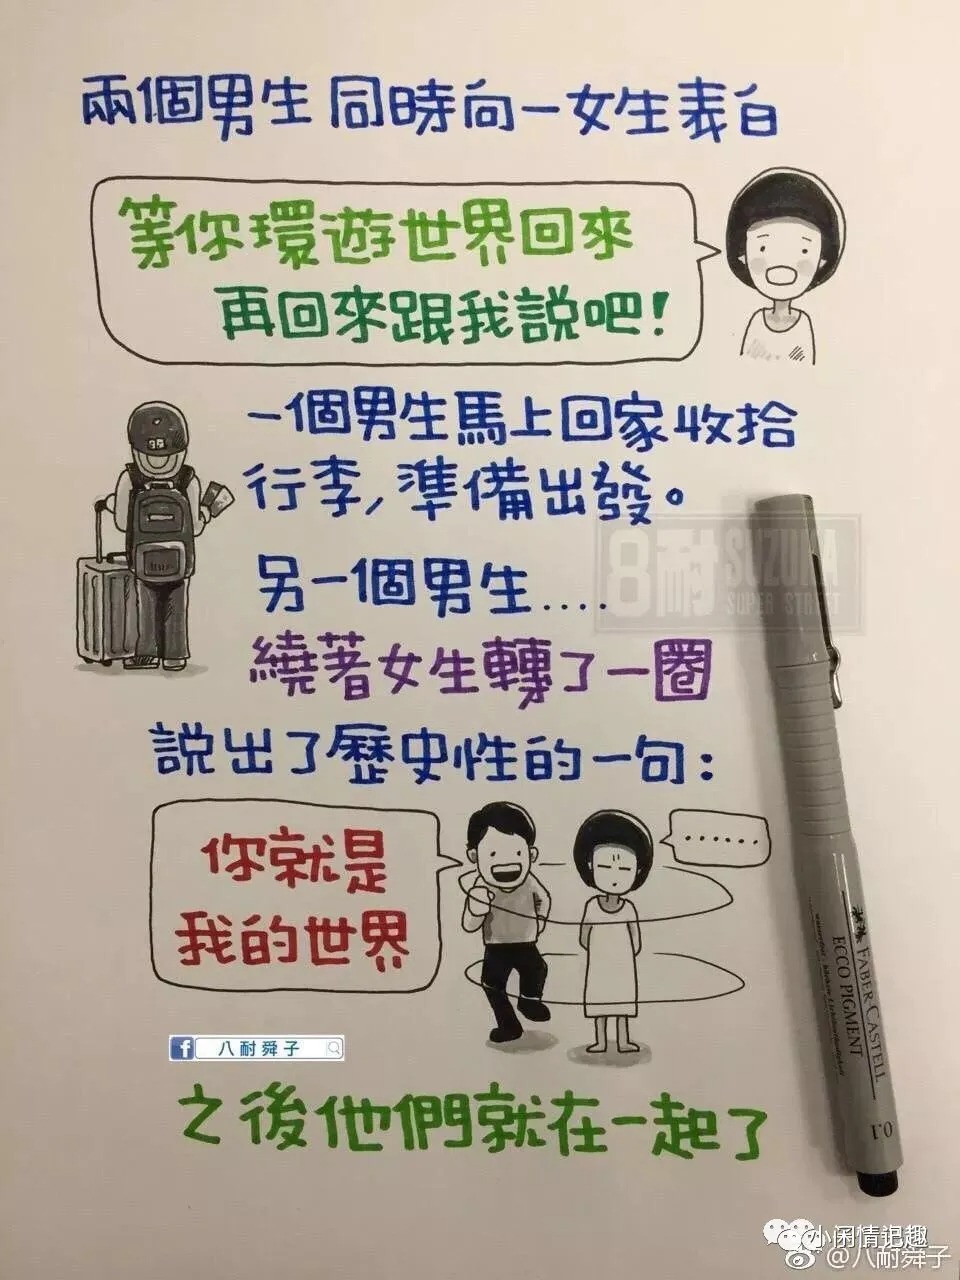 兩個男生同時向一女生表白
等你環遊世界回來
再回來跟我說吧!
一個男生馬上回家收拾
行李,準備出發。
8耐 SUZUKA
SUPER STREET
另一個男生....
繞著女生轉了一圈
說出了歷史性的一句:
......
你就是
我的世界
f 八耐舜子
之後他們就在一起了
FABER-CASTELL
ECCO PIGMENT
0.1
小闲情记趣
@八耐舜子